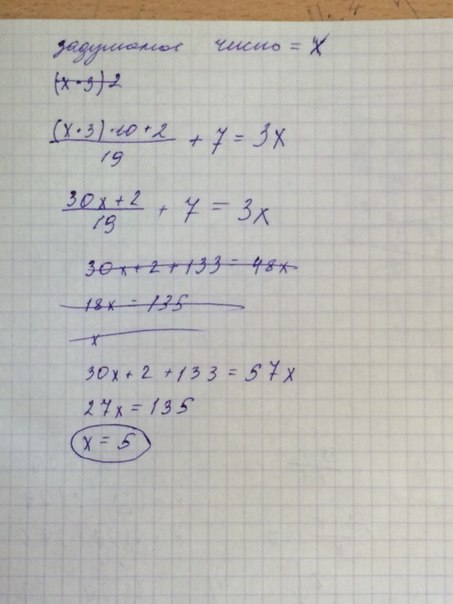 задуманое число = x
(x · 3) 2
(x · 3) · 10 + 2 / 19 + 7 = 3x
30x + 2 / 19 + 7 = 3x
30x + 2 + 133 = 48x
18x = 135
x
30x + 2 + 133 = 57x
27x = 135
x = 5